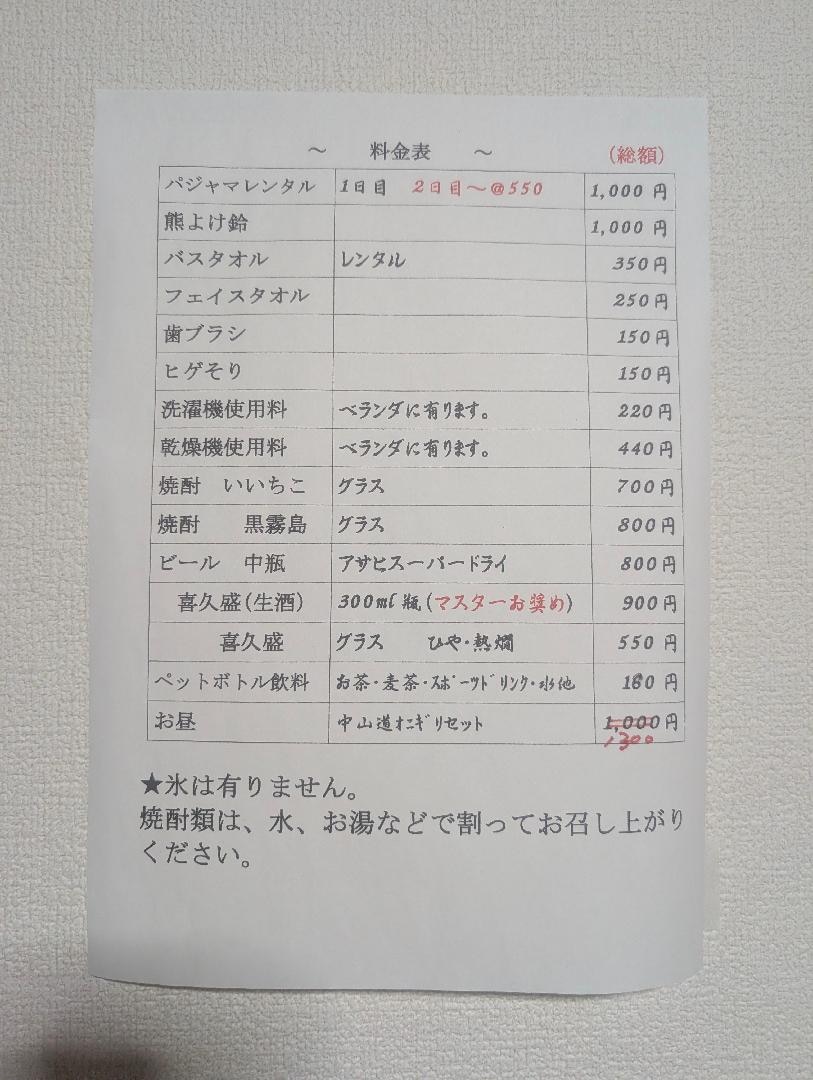 ～ 料金表 ～ (総額)
パジャマレンタル 1日目 2日目～@550 1,000 円
熊よけ鈴 1,000 円
バスタオル レンタル 350円
フェイスタオル 250円
歯ブラシ 150円
ヒゲそり 150円
洗濯機使用料 ベランダに有ります。 220円
乾燥機使用料 ベランダに有ります。 440円
焼酎 いいちこ グラス 700円
焼酎 黒霧島 グラス 800円
ビール 中瓶 アサヒスーパードライ 800円
喜久盛(生酒) 300ml瓶(マスターお奨め) 900円
喜久盛 グラス ひや・熱燗 550円
ペットボトル飲料 お茶・麦茶・スポーツドリンク・水他 円
お昼 中山道オニギリセット 1,000円
1300
★氷は有りません。
焼酎類は、水、お湯などで割ってお召し上がり
ください。